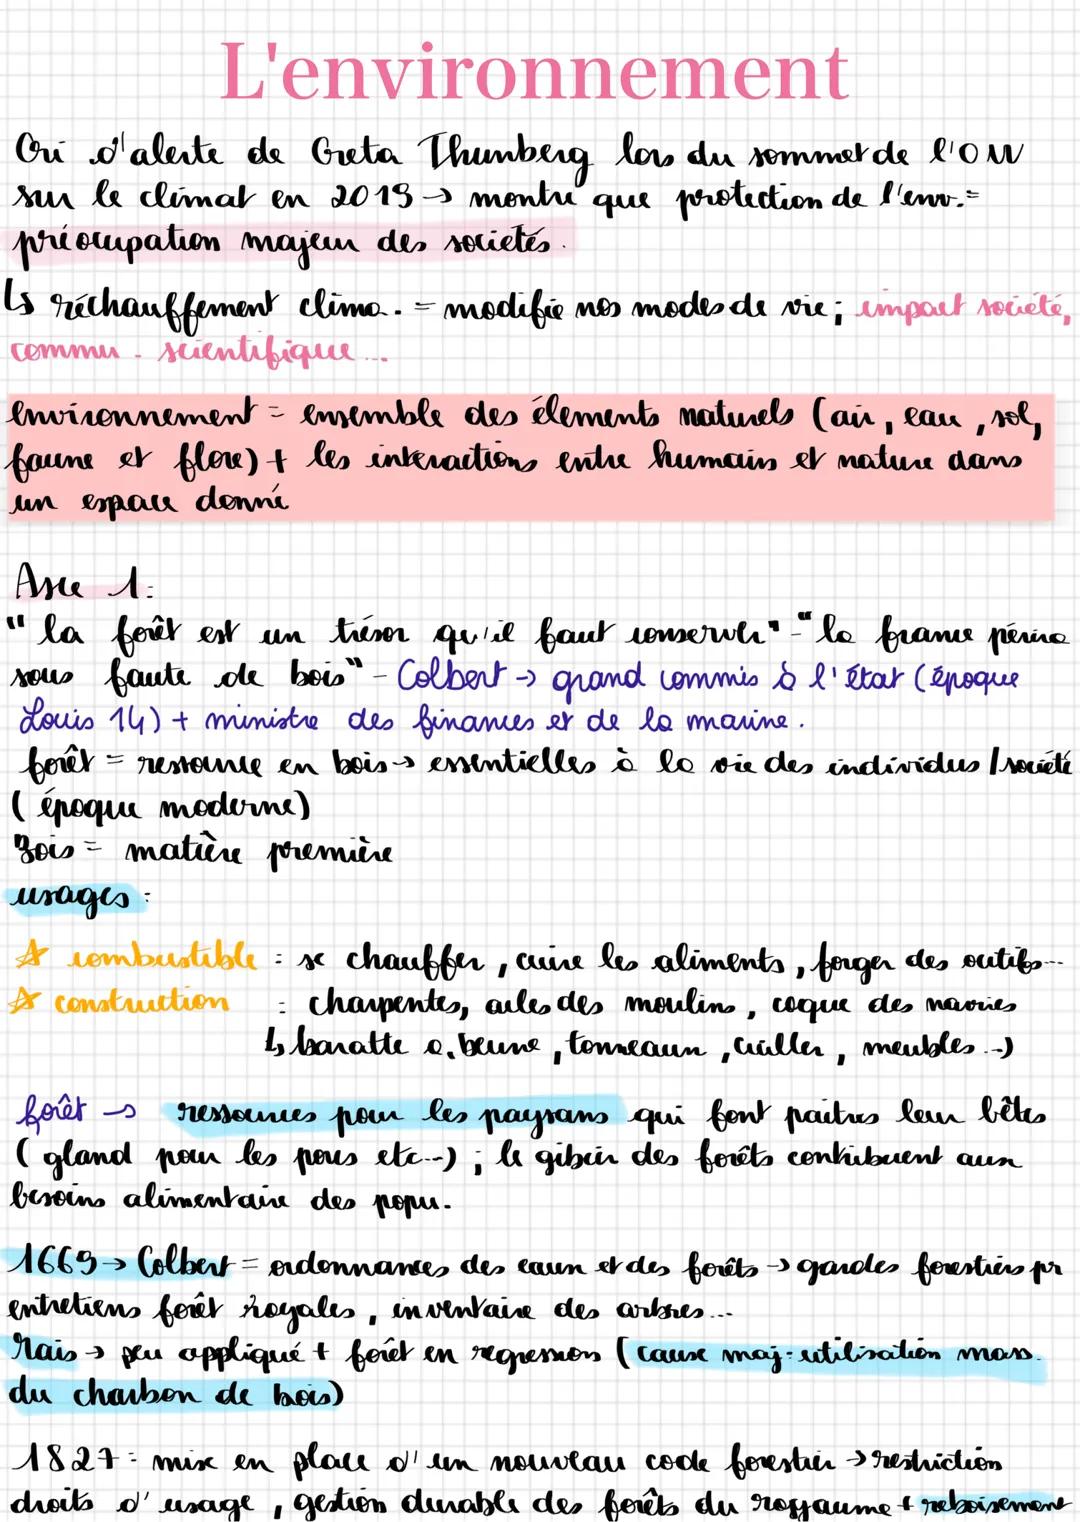 L'environnement
Cri d'alerte de Greta Thumberg lors du sommet de l'ONU
sur le climat en 2019 → montre que protection de l'env. =
préocupation majeur des societés.
↳ réchauffement clima. = modifie nos modes de vie ; impact société,
commu. scientifique ...
Environnement = ensemble des élements naturels (air, eau, sol,
faune et flore) + les interactions entre humains et nature dans
un espace donné
Axe 1 :
" la forêt est un trésor qu'il faut conserver" - "la france périra
sous faute de bois" - Colbert → grand commis à l'état (époque
Louis 14) + ministre des finances et de la marine.
forêt = ressource en bois → essentielles à la vie des individus / société
( époque moderne)
Bois = matière première
usages :
☆ combustible : se chauffer, cuire les aliments, forger des outifs...
☆ construction : charpentes, ailes des moulins, coque des navries
↳ baratte a. beurre, tonneaux, cuiller, meubles ...)
forêt → ressources pour les paysans qui font paitres leur bêtes
( gland pour les porcs etc...) ; le gibier des forêts contribuent aux
besoins alimentaire des popu.
1669 → Colbert = ordonnances des eaux et des forêts → gardes forestiers pr
entretiens forêt royales, inventaire des arbres ...
Mais → peu appliqué + forêt en regression (cause maj. utilisation mass.
du charbon de bois)
1827 : mise en place d'un nouveau code forestier → restriction
droits d'usage, gestion durable des forêts du royaume + reboisement